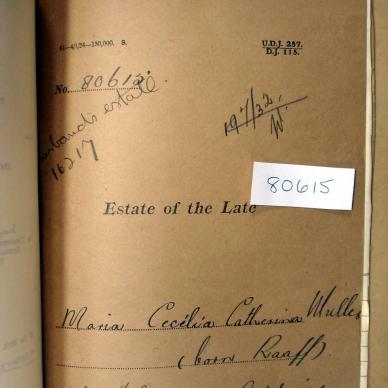 U.D.J. 257.
D.J. 118.
No. 80615.
husbands estate
16217
197/32.
80615
Estate of the Late
Maria Cecilia Catherina Muller
(born Raaff)